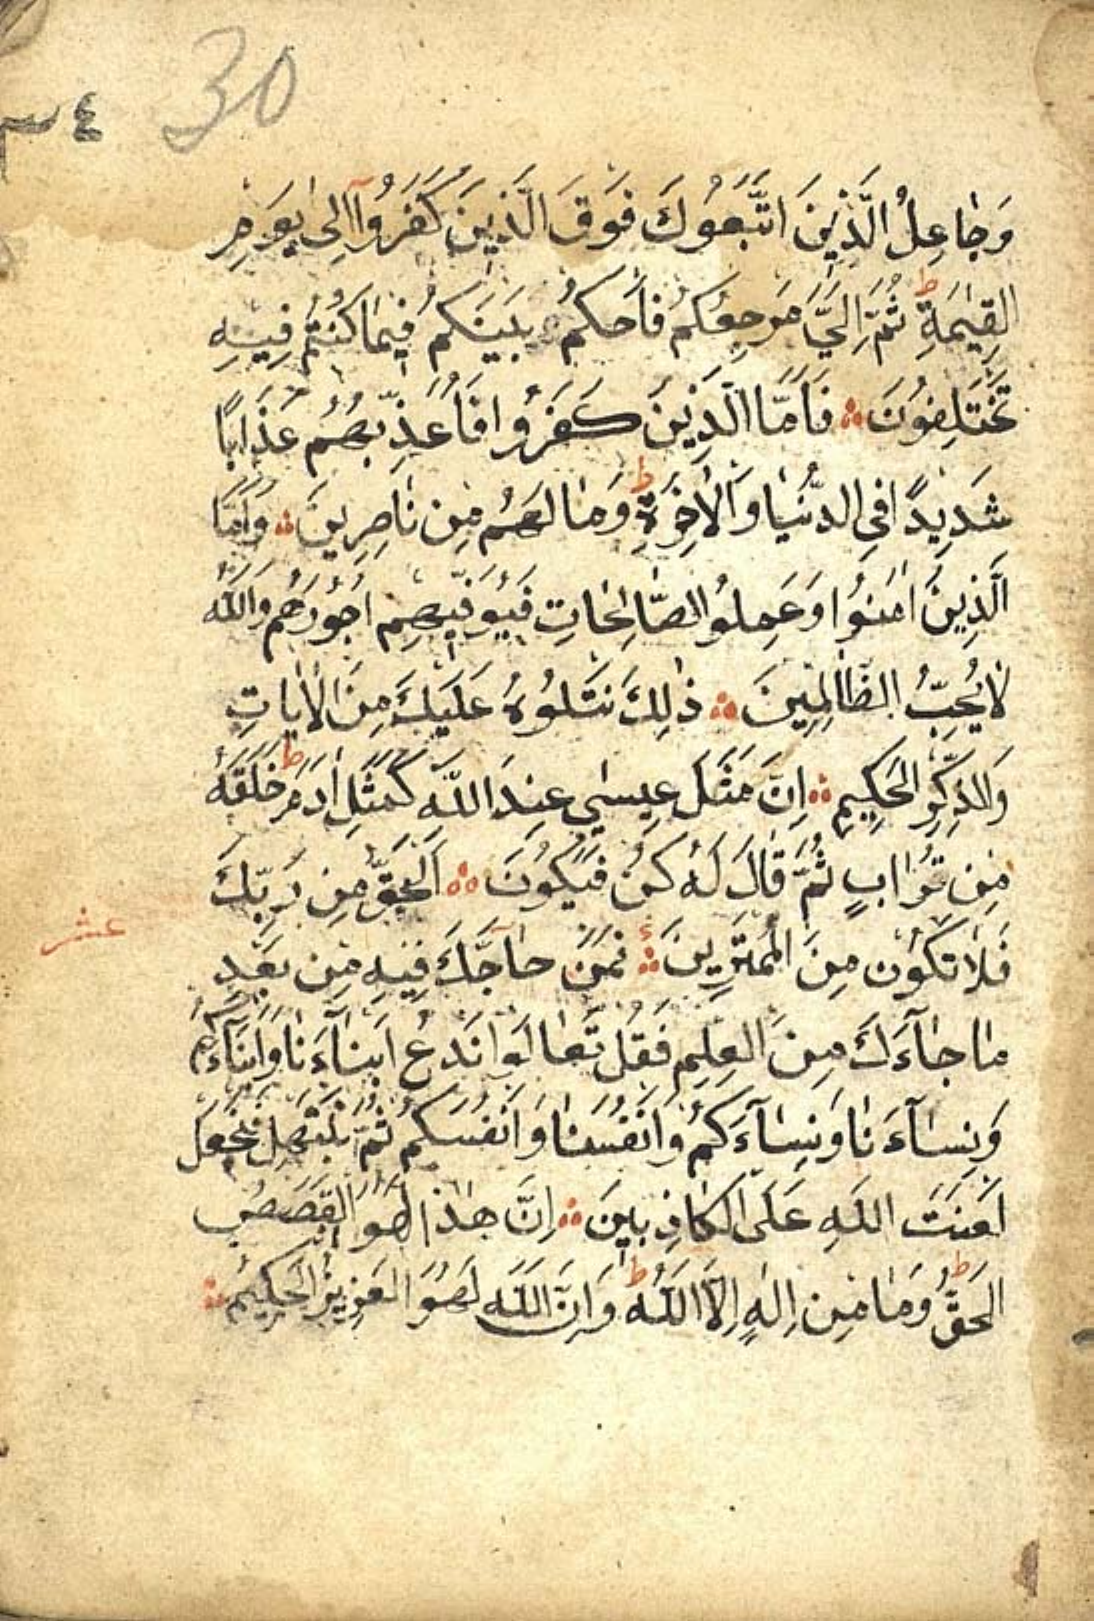 30
٣٤
وَجَاعِلُ الَّذِينَ اتَّبَعُوكَ فَوْقَ الَّذِينَ كَفَرُوآ اِلىٰ يَوْمِ
القِيٰمَةِ ط ثُمَّ اِلَيَّ مَرْجِعُكُمْ فَاَحْكُمُ بَيْنَكُمْ فِيمَا كُنْتُمْ فِيهِ
تَخْتَلِفُونَ ؞ فَاَمَّا الَّذِينَ كَفَرُوا فَاُعَذِّبُهُمْ عَذَابًا
شَدِيدًا فِي الدُّنْيَا وَالْاٰخِرَةِ ط وَمَا لَهُمْ مِنْ نَاصِرِينَ ؞ وَاَمَّا
الَّذِينَ اٰمَنُوا وَعَمِلُوا الصَّالِحَاتِ فَيُوَفِّيهِمْ اُجُورَهُمْ وَاللّٰهُ
لَا يُحِبُّ الظَّالِمِينَ ؞ ذٰلِكَ نَتْلُوهُ عَلَيْكَ مِنَ الْاٰيَاتِ
وَالذِّكْرِ الْحَكِيمِ ؞ اِنَّ مَثَلَ عِيسٰي عِنْدَ اللّٰهِ كَمَثَلِ اٰدَمَ ط خَلَقَهُ
مِنْ تُرَابٍ ثُمَّ قَالَ لَهُ كُنْ فَيَكُونُ ؞ اَلْحَقُّ مِنْ رَبِّكَ
فَلَا تَكُونَ مِنَ الْمُمْتَرِينَ ؞ فَمَنْ حَآجَّكَ فِيهِ مِنْ بَعْدِ
عشر
مَا جَآءَكَ مِنَ الْعِلْمِ فَقُلْ تَعَالَوْا نَدْعُ اَبْنَآءَنَا وَاَبْنَآءَكُمْ
وَنِسَآءَنَا وَنِسَآءَكُمْ وَاَنْفُسَنَا وَاَنْفُسَكُمْ ثُمَّ نَبْتَهِلْ فَنَجْعَلْ
لَعْنَتَ اللّٰهِ عَلَى الْكَاذِبِينَ ؞ اِنَّ هٰذَا لَهُوَ الْقَصَصُ
الْحَقُّ ط وَمَا مِنْ اِلٰهٍ اِلَّا اللّٰهُ ط وَاِنَّ اللّٰهَ لَهُوَ الْعَزِيزُ الْحَكِيمُ ؞